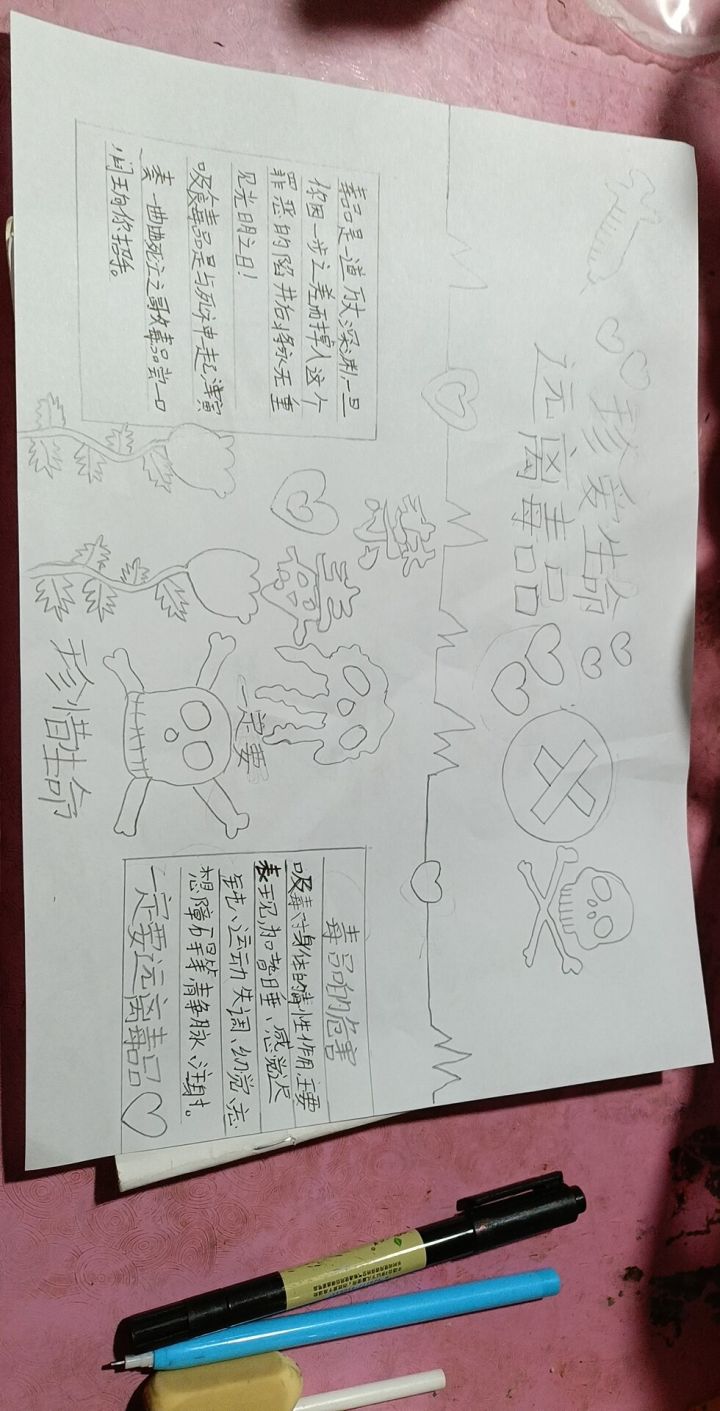 珍爱生命
远离毒品
禁
毒
毒品是一道万丈深渊一旦
你因一步之差而掉入这个
罪恶的陷井后将永无重
见光明之日!
吸食毒品是与死神一起弹奏
奏一曲曲死亡之歌久毒品尝一口
阎王向你招手。
一定要
珍惜生命
毒品的危害
吸毒对身体的毒性作用主要
表现加嗜睡、感觉迟
钝、运动失调、幻觉、妄
想障碍等清争脉、注射。
一定要远离毒品